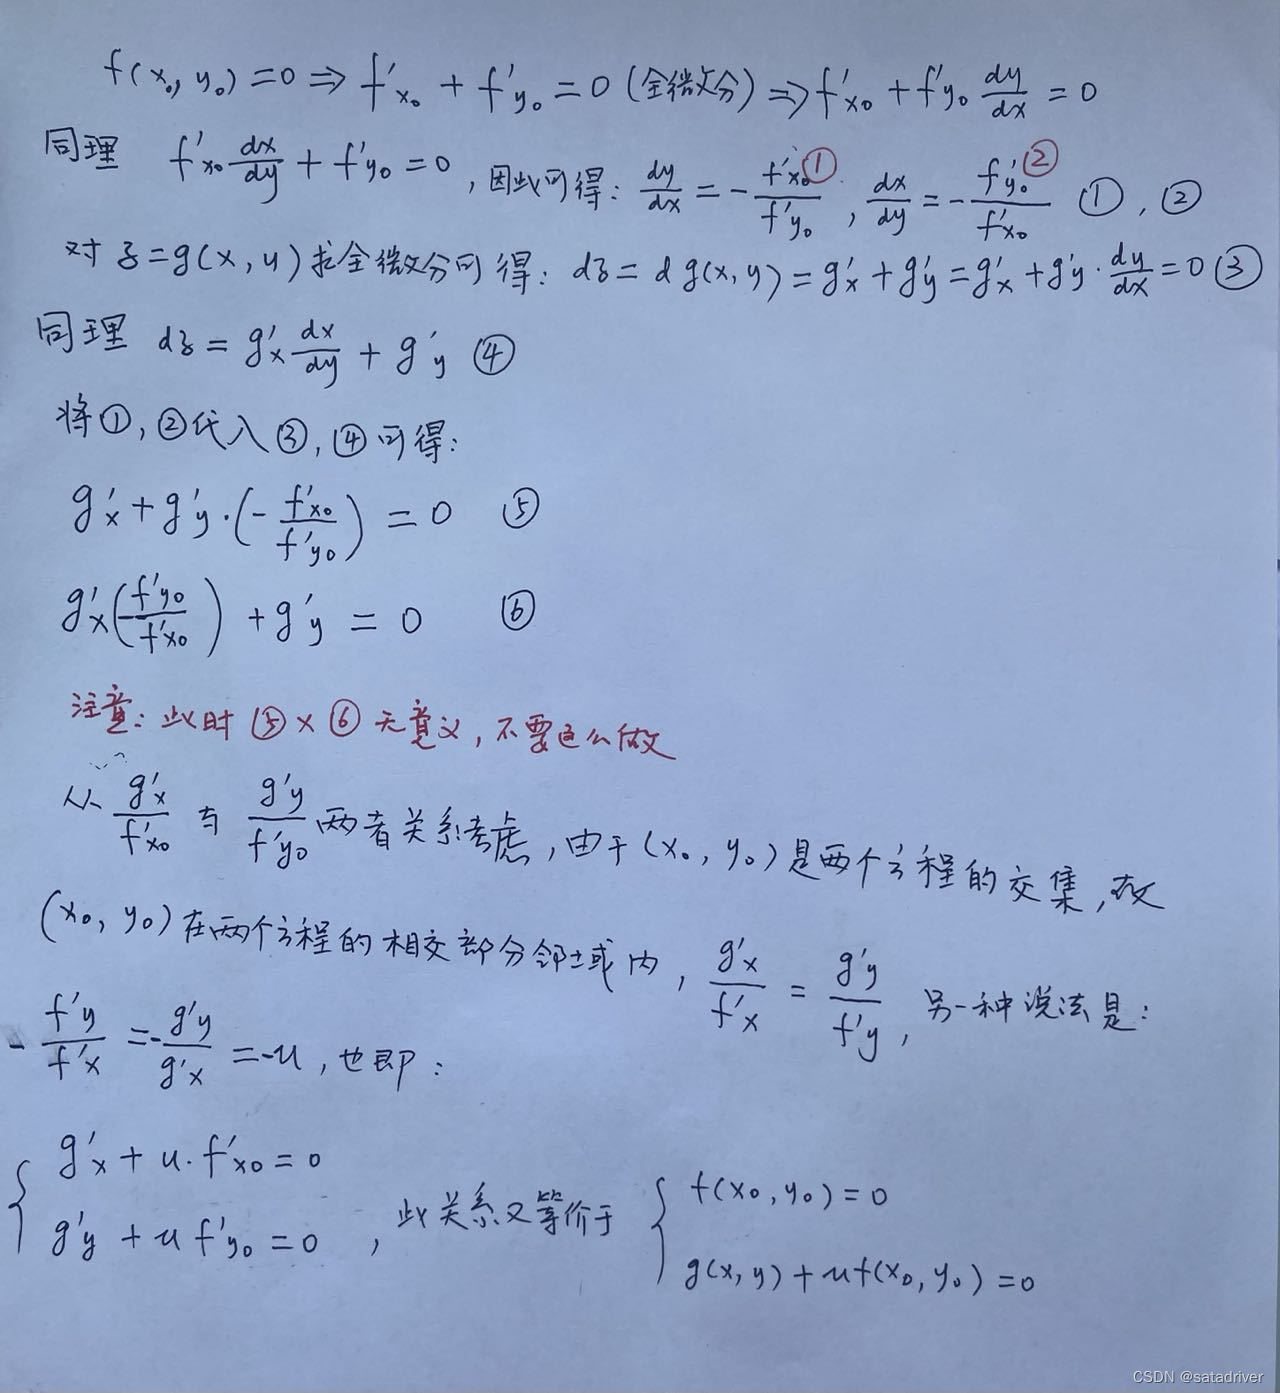 f(x₀, y₀)=0 ⇒ f'x₀ + f'y₀ = 0 (全微分) ⇒ f'x₀ + f'y₀ dy/dx = 0
同理 f'x₀ dx/dy + f'y₀ = 0, 因此可得: dy/dx = - f'x₀/f'y₀ ①, dx/dy = - f'y₀/f'x₀ ② ①, ②
对 z=g(x,y) 求全微分可得: dz = d g(x,y) = g'x + g'y = g'x + g'y · dy/dx = 0 ③
同理 dz = g'x dx/dy + g'y ④
将①, ②代入③, ④可得:
g'x + g'y · (- f'x₀/f'y₀) = 0 ⑤
g'x (- f'y₀/f'x₀) + g'y = 0 ⑥
注意: 此时 ⑤ × ⑥ 无意义, 不要这么做
从 g'x/f'x₀ 与 g'y/f'y₀ 两者关系考虑, 由于 (x₀, y₀) 是两个方程的交集, 故
(x₀, y₀) 在两个方程的相交部分邻域内, g'x/f'x = g'y/f'y, 另一种说法是:
- f'y/f'x = - g'y/g'x = -u, 也即:
{ g'x + u · f'x₀ = 0
g'y + u f'y₀ = 0 , 此关系又等价于 { f(x₀, y₀) = 0
g(x,y) + u f(x₀, y₀) = 0
CSDN @satadriver